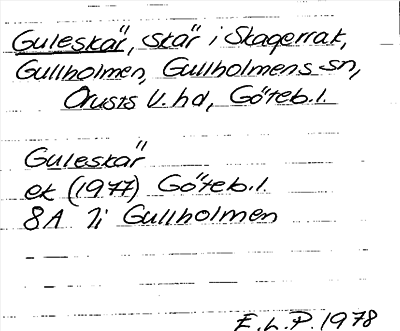 Guleskär, skär i Skagerrak,
Gullholmen, Gullholmens sn,
Orusts V. hd, Göteb. l.
Guleskär
ek (1977) Göteb. l.
8A 7i Gullholmen
E. L. P. 1978